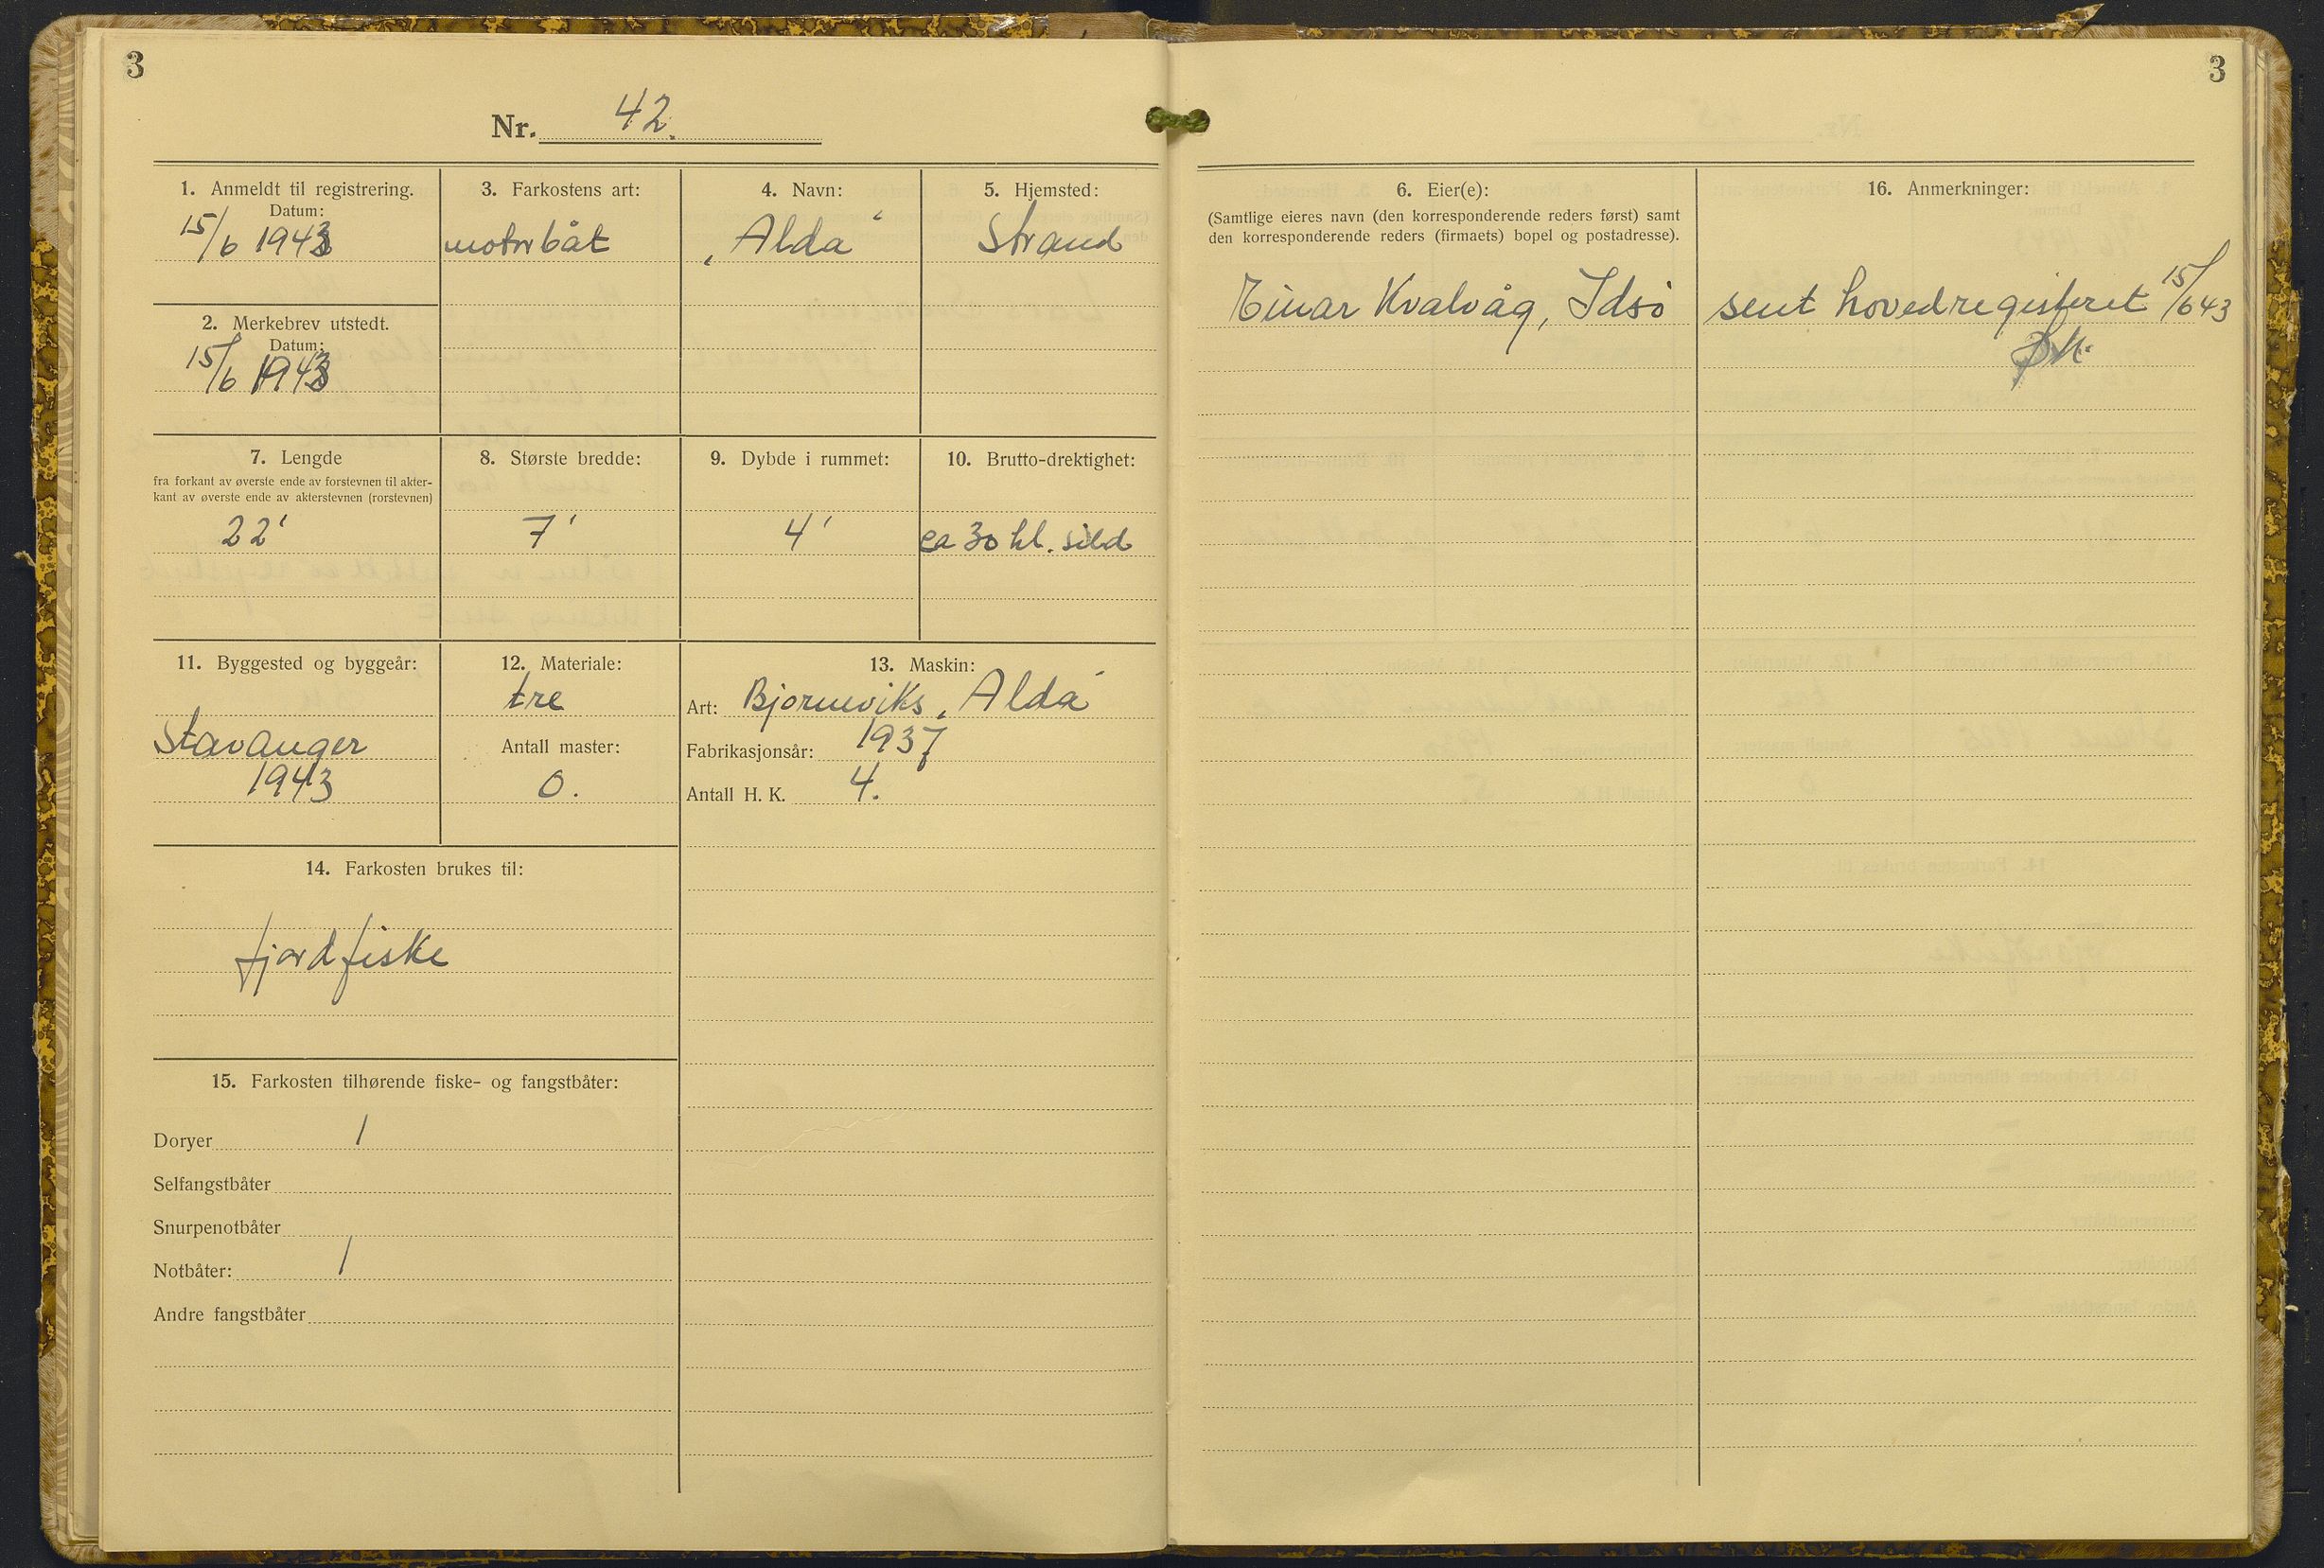 3
Nr. 42.
1. Anmeldt til registrering.
Datum:
15/6 1943
2. Merkebrev utstedt.
Datum:
15/6 1943
3. Farkostens art:
motorbåt
4. Navn:
"Alda"
5. Hjemsted:
Strand
7. Lengde
fra forkant av øverste ende av forstevnen til akter-
kant av øverste ende av akterstevnen (rorstevnen)
22'
8. Største bredde:
7'
9. Dybde i rummet:
4'
10. Brutto-drektighet:
ca 30 hl. sild
11. Byggested og byggeår:
Stavanger
1943
12. Materiale:
tre
Antall master:
0.
13. Maskin:
Art: Bjørneviks "Alda"
Fabrikasjonsår: 1937
Antall H. K. 4.
14. Farkosten brukes til:
fjordfiske
15. Farkosten tilhørende fiske- og fangstbåter:
Doryer 1
Selfangstbåter
Snurpenotbåter
Notbåter: 1
Andre fangstbåter
3
6. Eier(e):
(Samtlige eieres navn (den korresponderende reders først) samt
den korresponderende reders (firmaets) bopel og postadresse).
Einar Kvalvåg, Idsø
16. Anmerkninger:
sent hovedregisteret 15/6 43